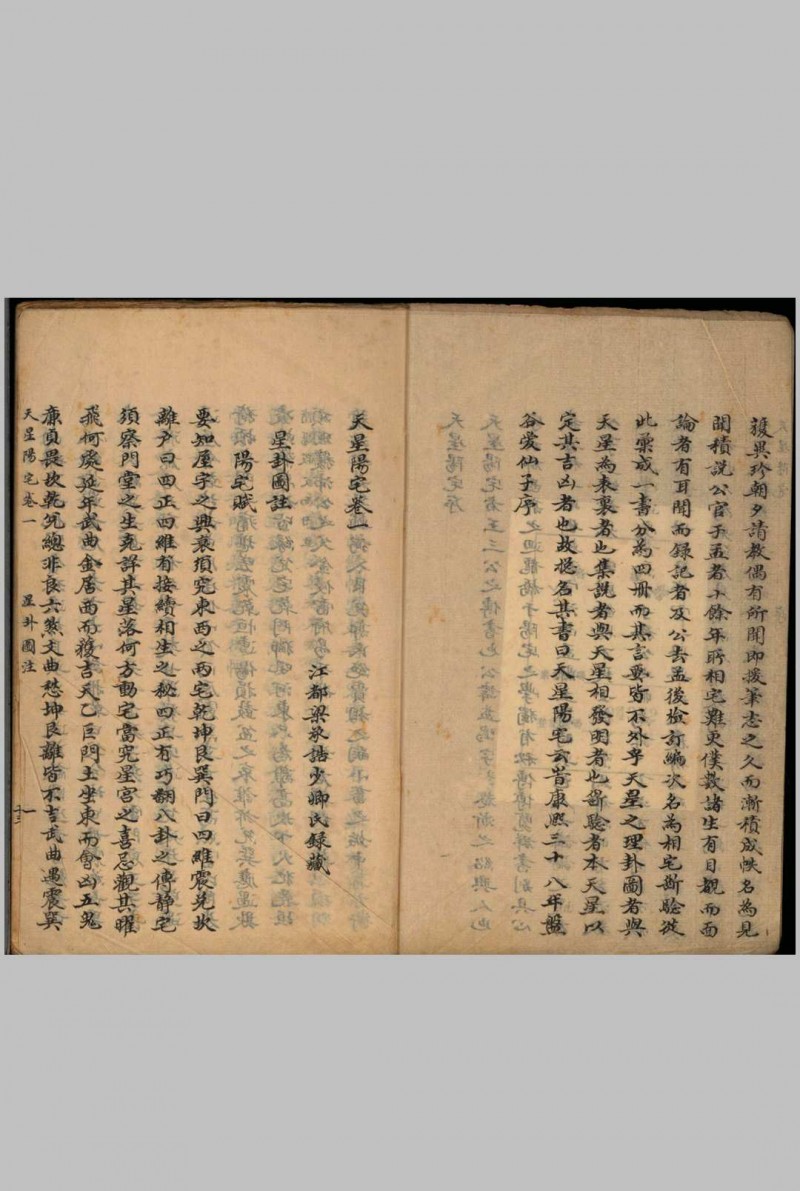 獲與珍朝夕請教偶有所聞即援筆志之久而漸積成帙名為見
聞積說公官于孟者十餘年所相宅難更僕数諸生有目覩而面
論者有耳聞而録記者及公去孟後檢訂編次名為相宅斷驗從
此彙成一書分為四冊而其言要皆不外乎天星之理卦圖者與
天星為表裏者也集說者與天星相發明者也斷驗者本天星以
定其吉凶者也故揔名其書曰天星陽宅云旹康熙三十八年盤
谷愛仙子序
天星陽宅卷一
江都梁承誥少卿氏録藏
星卦圖註
陽宅賦
要知屋宇之興衰須究東西之兩宅乾坤艮巽門曰四維震兌坎
離户曰四正四維有接續相生之秘四正有巧翻八卦之傳静宅
須察門堂之生尅詳其星落何方動宅當究星宮之喜忌觀其曜
飛何處延年武曲金居西而獲吉天乙巨門土坐東而會凶五鬼
廉貞畏坎乾兌總非良六煞文曲愁坤艮離皆不吉武曲遇震巽
天星陽宅卷一
星卦圖注
一